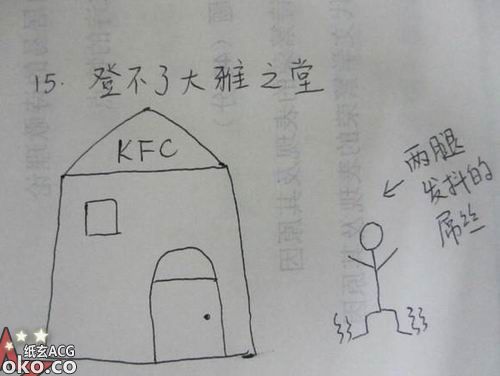 15. 登不了大雅之堂
KFC
两腿
发抖的
屌丝
纸玄ACG
oko.co